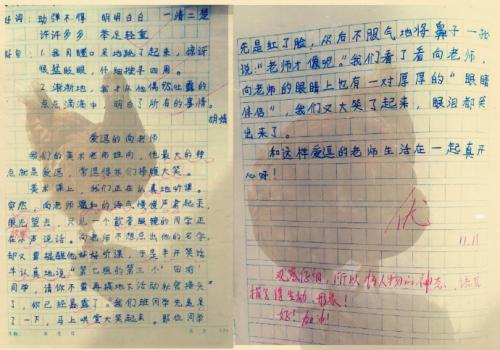 好词：动弹不得 明明白白 一清二楚
许许多多 举足轻重
好句：
悠然地说
了渐渐地，我才从他偶然吐露的
点点滴滴中 明白了所有的事情。
胡婧
爱逗的向老师
我们的美术老师姓向，他最大的特
点就是爱逗，常逗得我们捧腹大笑。
美术课上，我们正在认真地听课。
突然，向老师 的语气慢慢严肃起来，
眼光望去，只见一个戴着眼镜的同学正
在小声说话。向老师不想点出他的名字，
却又要提醒他好好听课，于是半开笑话
半认真地说“第七组的第三个‘田’
同学，请你不要再搞地下活动 接头
了，你已经暴露了。”我们班同学先是呆
了一下，马上哄堂大笑起来。那位同学
先是红了脸，然后不服气地将鼻子一抽
说：“老师才傻呢。”我们看了看向老师，
向老师的眼睛上也有一对厚厚的“眼睛
伴侣”，我们又大笑了起来，眼泪都笑
出来了。
和这样爱逗的老师生活在一起真开
心呀！
优
11.11
观察仔细，所以将人物的神态、语言
描写得生动、形象！
好！加油！